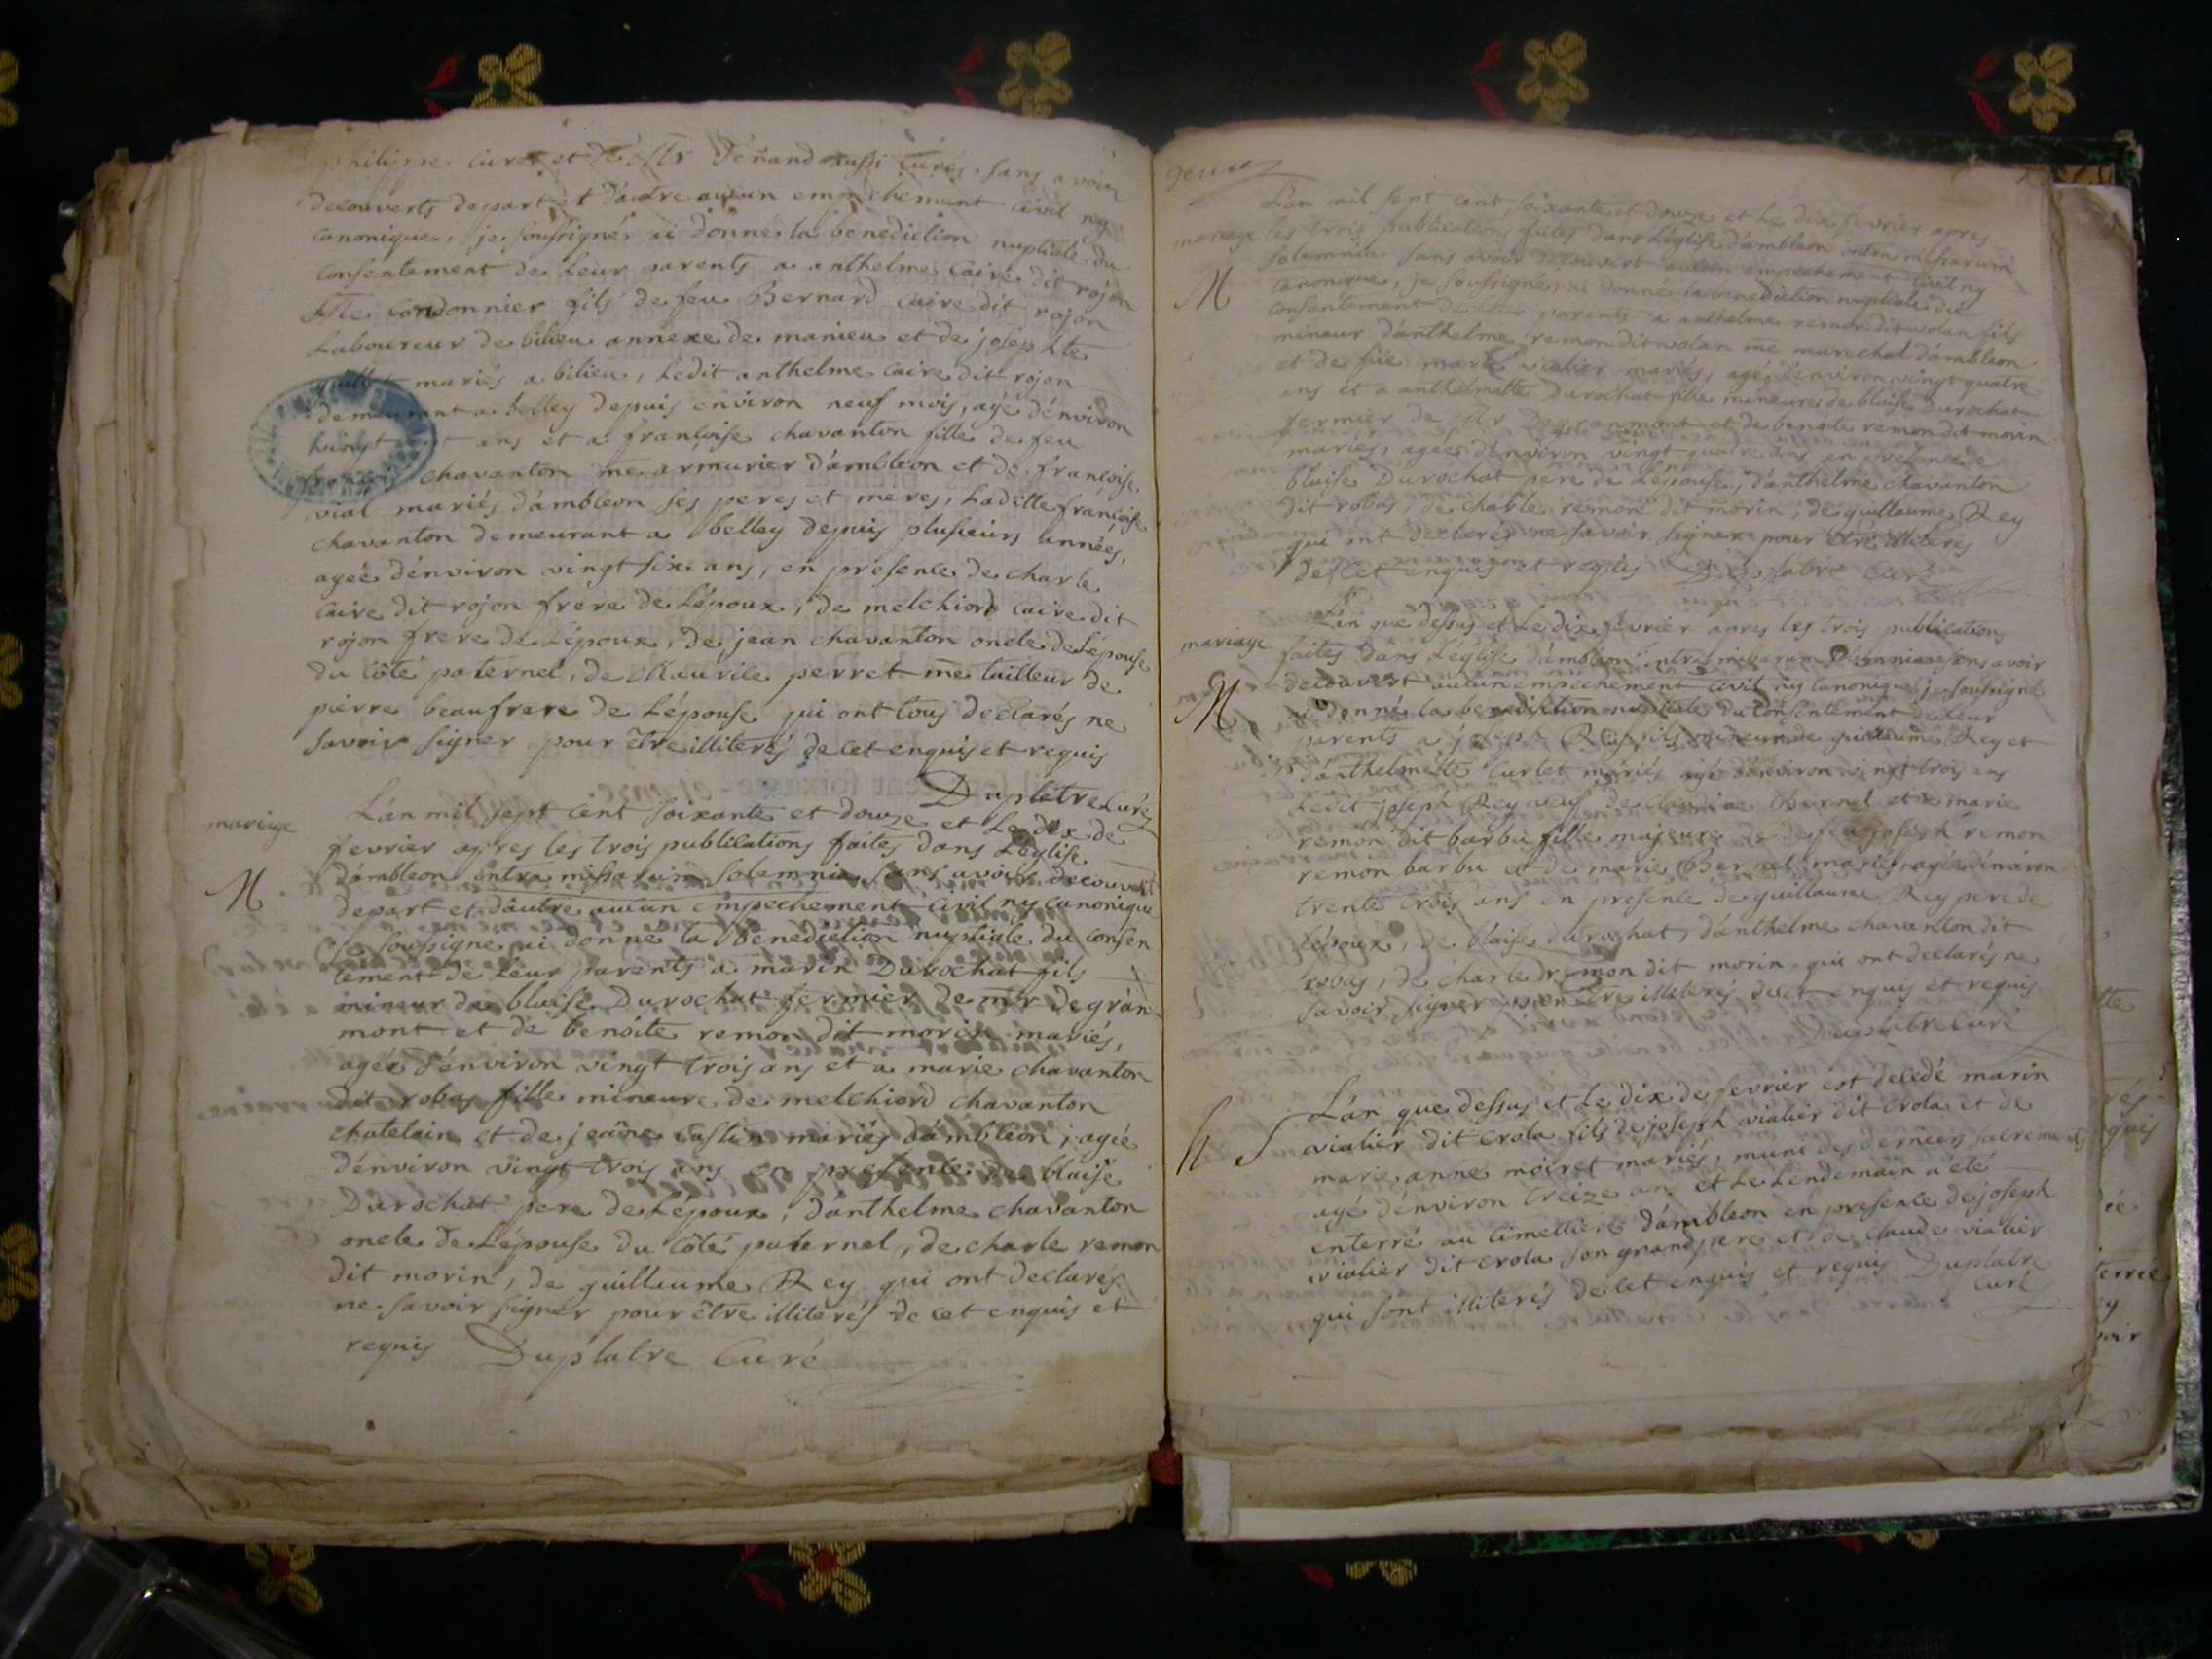 philippe curé et de Mr fénand aussi curés, sans avoir
decouverts depart et dáutre aucun empechement civil ny
canonique, je soussigné ai donné la benediction nuptiale du
consentement de Leur parents a anthelme Caire dit rojon
me Cordonnier fils de feu Bernard Caire dit rojon
Laboureur de bilieu annexe de marieu et de josephte
mariés a bilieu, Ledit anthelme Caire dit rojon
demeurant a belley depuis environ neuf mois, agé dénviron
vingt ans et a françoise chavanton fille de feu
françois chavanton me armurier dámbleon et de françoise
vial mariés dámbleon ses peres et méres, Laditte françoise
chavanton demeurant a belley depuis plusieurs années,
ageé dénviron vingt six ans, en présence de charle
Caire dit rojon frere de Lépoux, de melchiord Caire dit
rojon frere de Lépoux, de jean chavanton oncle de Lépouse
du Côté paternel, de Maurice perret me tailleur de
pierre beaufrere de Lépouse qui ont tous declarés ne
savoir signer pour être illiterés de cet enquis et requis
Duplatre Curé
mariage
Lán mil sept cent soixante et douze et Le dix de
fevrier apres les trois publications faites dans Léglise
dámbleon intra missarum solemnia, sans avoir decouvert
M
depart et dáutre aucun empechement civil ny canonique
je soussigne ai donné la benediction nuptiale du consen
tement de Leur parents a marin Durochat fils
mineur de blaise Durochat fermier de mr de gran
mont et de benoite remon dit morin mariés,
agée dénviron vingt trois ans et a marie chavanton
dit robas fille mineure de melchiord chavanton
chatelain et de jeanne Caslin mariés dámbleon, agée
dénviron vingt trois ans en presence de blaise
Durochat pere de Lépoux, dánthelme chavanton
oncle de Lépouse du Côté paternel, de charle remon
dit morin, de guillaume Rey qui ont declarés
ne savoir signer pour être illiterés de cet enquis et
requis Duplatre Curé
Lán mil sept cent soixante et douze et Le dix fevrier apres
mariage les trois publications faites dans Léglise dámbleon intra missarum
solemnia sans avoir decouvert aucun empechement civil ny
M
canonique, je soussigné ai donné la benediction nuptiale du
consentement de Leur parents a anthelme remon dit volan fils
mineur dánthelme remon dit volan me marechal dámbleon
et de füe marie vialier mariés, agé dénviron vingt quatre
ans et a anthelmette Durochat fille mineure de blaise Durochat
fermier de Mr De granmont et de benoite remon dit morin
mariés, agée dénviron vingt quatre ans en presence de
blaise Durochat pere de Lépouse, dánthelme chavanton
dit robas, de charle remon dit morin, de guillaume Rey
qui ont declarés ne savoir signer pour être illiterés
de cet enquis et requis Duplatre Curé
mariage
Lán que dessus et Le dix fevrier apres les trois publications
faites dans Léglise dámbleon intra missarum solemnia sans avoir
decouvert aucun empechement civil ny canonique je soussigné
M
ai donné la benediction nuptiale du consentement de Leur
parents a joseph Rey fils mineur de guillaume Rey et
dánthelmette Curtet mariés agé dénviron vingt trois ans
Ledit joseph Rey veuf de claudine Bernel et a marie
remon dit barbu fille majeure de feu joseph remon
remon barbu et de marie Bernel mariés, agée dénviron
trente trois ans en presence de guillaume Rey pere de
Lépoux, de blaise durochat, dánthelme chavanton dit
robas, de charle remon dit morin, qui ont declarés ne
savoir signer pour être illiterés de cet enquis et requis
Duplatre Curé
S
Lán que dessus et Le dix de fevrier est decedé marin
vialier dit crola fils de joseph vialier dit crola et de
marie anne moiret mariés, muni des derniers sacrements
agé dénviron treize ans et Le Lendemain a été
enterré au Cimettiere dámbleon en presence de joseph
vialier dit crola son grand pere et de claude vialier
qui sont illiterés de cet enquis et requis Duplatre
curé